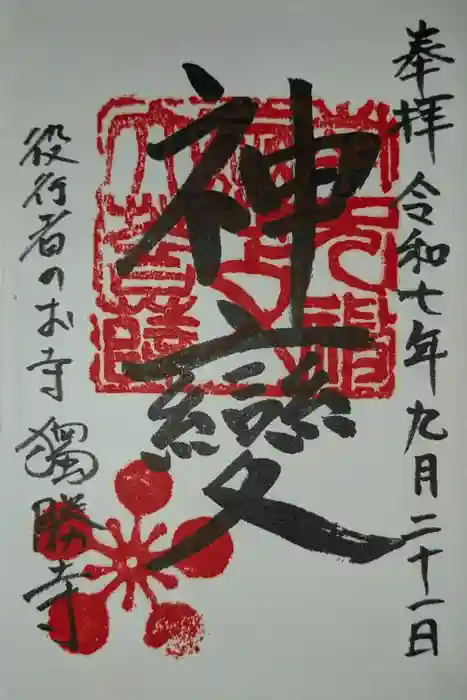 奉拝 令和七年九月二十一日
神變
役行者のお寺 獨勝寺